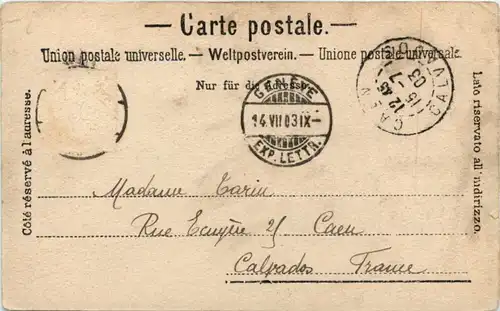 — Carte postale. —
Union postale universelle. — Weltpostverein. — Unione postale universale.
Nur für die Adresse.
Côté réservé à l'adresse.
Lato riservato all'indirizzo.
GENÈVE
14 VII 03 IX—
EXP. LETTR.
CAEN
12 45
15 - 7
03
CALVADOS
Madame Tarin
Rue Ecuyère 25 Caen
Calvados France